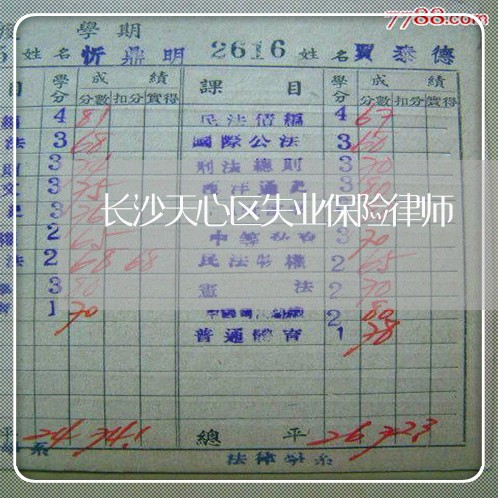 7788.com
度 學期
5 姓名 忻鼎明 2616 姓名 賈泰德
目 學分 成績 分數 扣分 實得 課目 學分 成績 分數 扣分 實得
編 4 81 民法債編 4 67
法 3 68 國際公法 3 60
則 3 刑法總則 3 70
文 3 75 西洋通史 3 80
史 3 3
長沙天心区失业保险律师
2 65 3 70
法 2 68 68 民法物權 2 65
3 80 憲法 2 70
育 1 70 2 80
普通體育 1 78
平 24 74.1 總平 26 72.3
系 法律學系